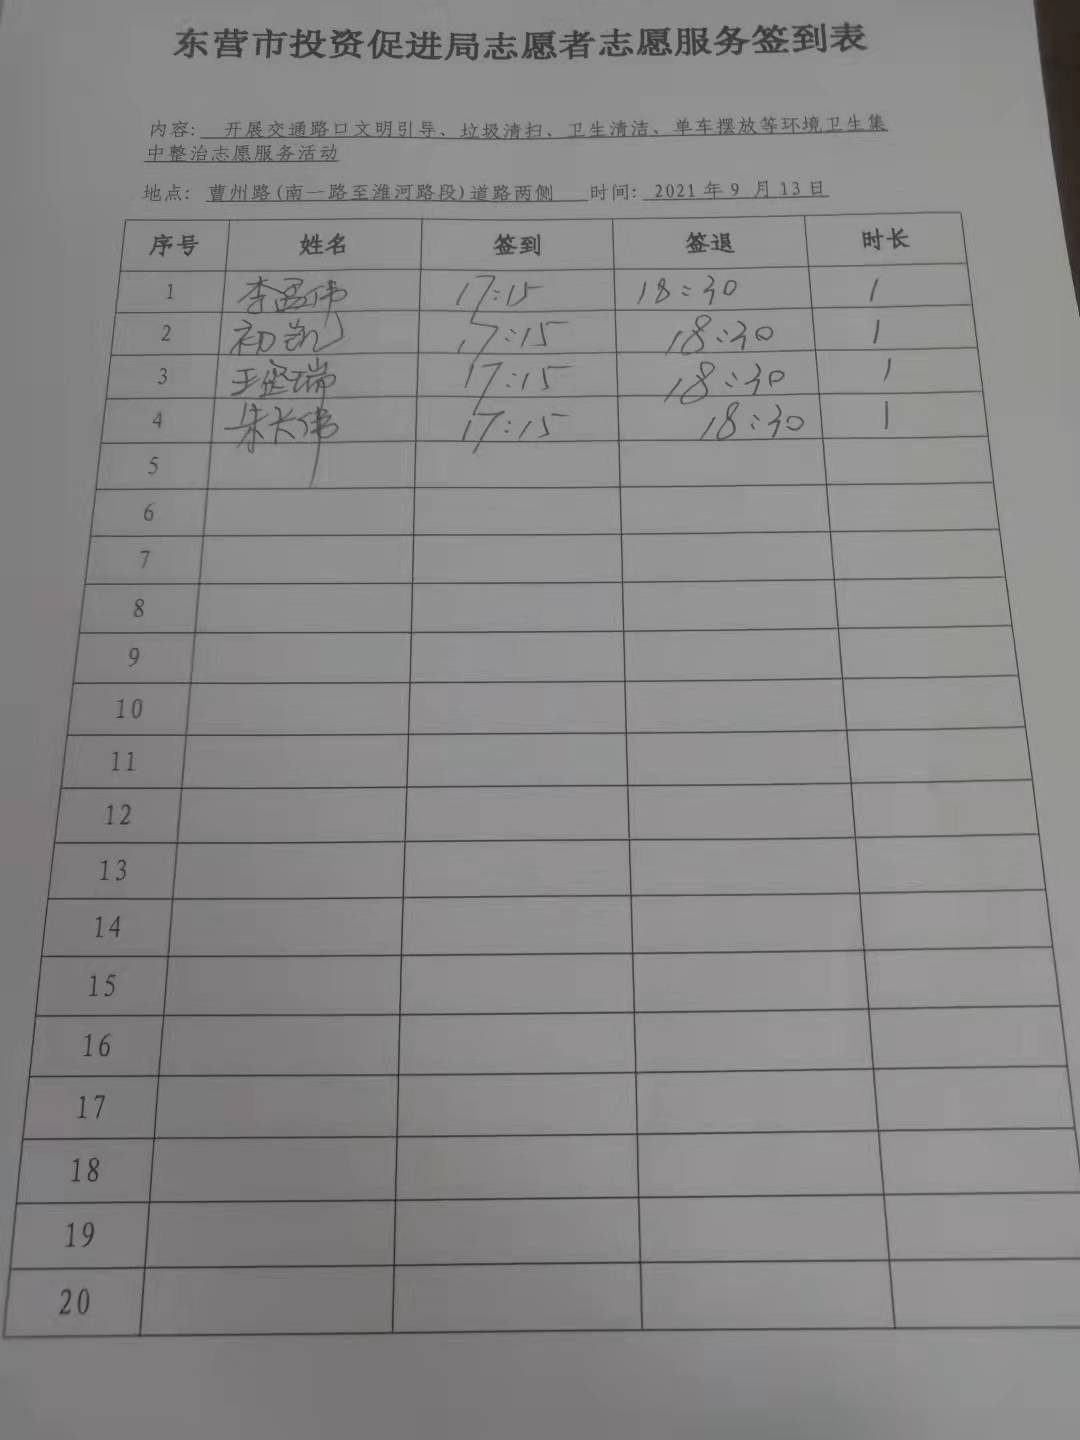 东营市投资促进局志愿者志愿服务签到表
内容: 开展交通路口文明引导、垃圾清扫、卫生清洁、单车摆放等环境卫生集
中整治志愿服务活动
地点: 曹州路(南一路至潍河路段)道路两侧 时间: 2021年9月13日
序号 姓名 签到 签退 时长
1 李 伟 17:15 18:30 1
2 初凯 17:15 18:30 1
3 王 瑞 17:15 18:30 1
4 朱长伟 17:15 18:30 1
5
6
7
8
9
10
11
12
13
14
15
16
17
18
19
20